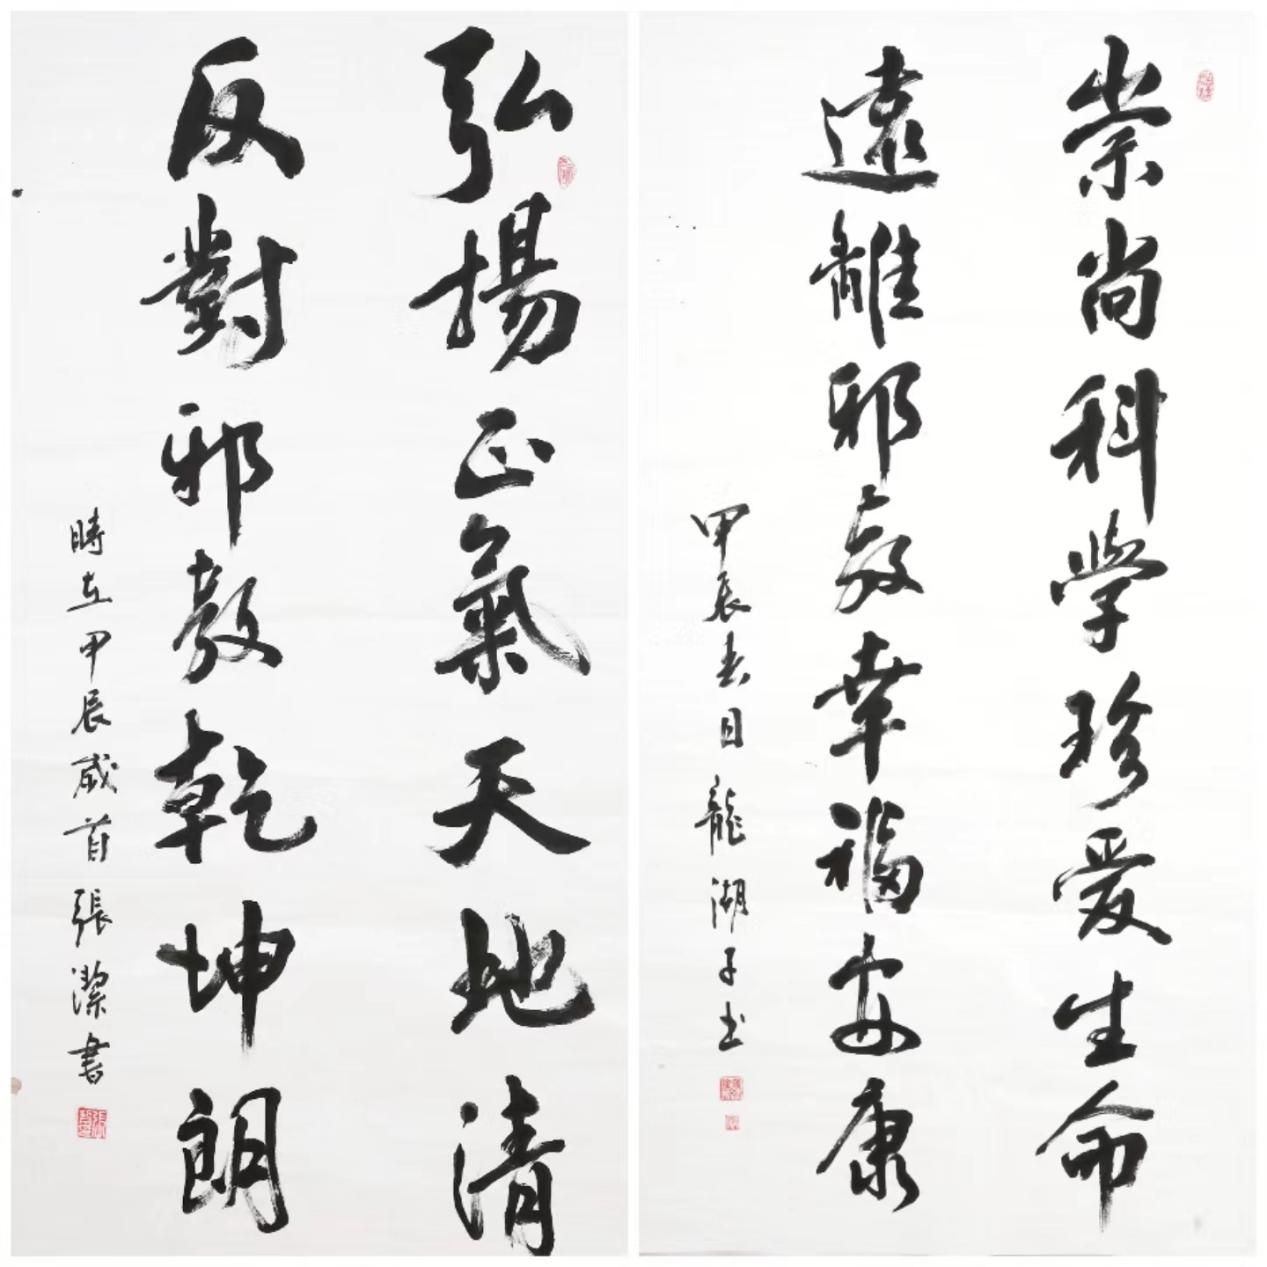 崇尚科学珍爱生命
遠離邪教幸福安康
甲辰春日龍湖子书
弘揚正氣天地清
反對邪教乾坤朗
時在甲辰歲首張潔書